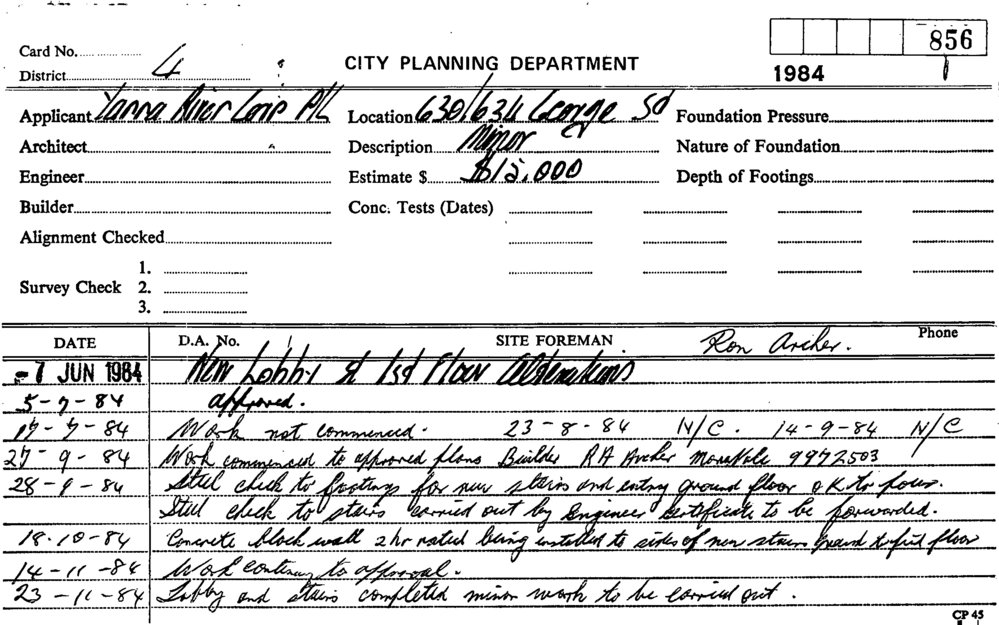 856
Card No.
District 4
CITY PLANNING DEPARTMENT
1984
Applicant Yarra River P/L Location 630/634 George St Foundation Pressure
Architect Description Minor Nature of Foundation
Engineer Estimate $ $15,000 Depth of Footings
Builder Conc. Tests (Dates)
Alignment Checked
1.
Survey Check 2.
3.
DATE D.A. No. SITE FOREMAN Ron Archer. Phone
-7 JUN 1984 New Lobby & 1st Floor Alterations
5-7-84 approved.
17-7-84 Work not commenced. 23-8-84 N/C. 14-9-84 N/C
27-9-84 Work commenced to approved plans Builder RA Archer MonaVale 9972503
28-9-84 Steel check to footings for new stairs and entry ground floor OK to pour.
Steel check to stairs carried out by Engineer Certificate to be forwarded.
18-10-84 Concrete block wall 2hr rated being installed to sides of new stairs ground to first floor
14-11-84 Work continuing to approval.
23-11-84 Lobby and stairs completed minor work to be carried out.
CP 45